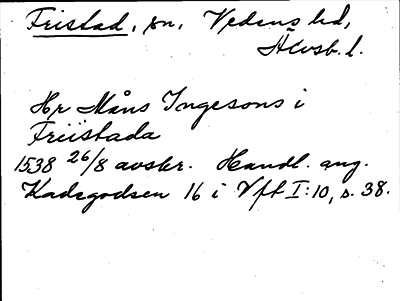 Fristad, sn, Vedens hd,
Älvsb. l.
Hr Måns Ingesons i
Friistada
1538 26/8 avskr. Handl. ang.
Kadsgodsen 16 i Vft I:10, s. 38.